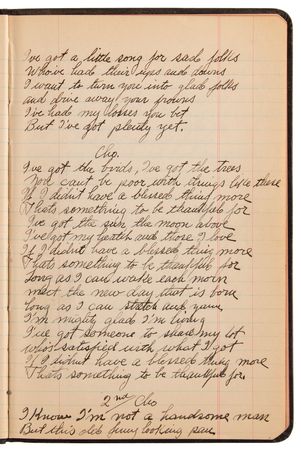 I've got a little song for sad folks
Who've had their ups and downs
I want to turn you into glad folks
and drive away your frowns
I've had my losses you bet
But I've got plenty yet.
Cho.
I've got the birds, I've got the trees
You cant be poor with things like these
If I didn't have a blessed thing more
Thats something to be thankful for
I've got the sun the moon above
I've got my health and those I love
If I didnt have a blessed thing more
Thats something to be thankful for
Long as I can wake each morn
meet the new day that is born
long as I can stretch and yawn
I'm mighty glad I'm living
I've got someone to share my lot
who's satisfied with what I got
If I didnt have a blessed thing more
Thats something to be thankful for
2nd Cho
I Know I'm not a handsome man
But this old funny looking pan